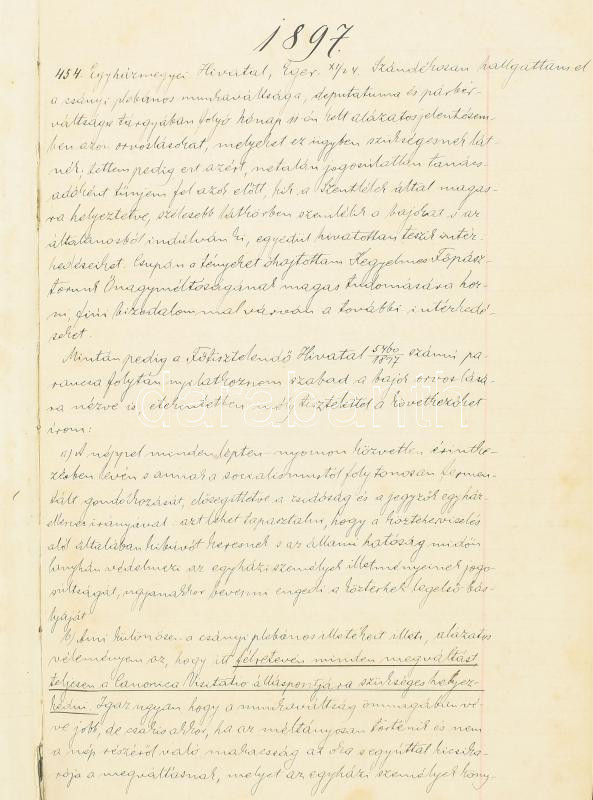 1897.
454. Egyházmegyei Hivatal, Eger. XI/24. Szándékosan hallgattam el
a csányi plebános munkaváltsága, deputatuma és párbér-
váltsága tárgyában folyó hónap 11-én kelt alázatos jelentésem-
ben azon orvoslásokat, melyeket ez ügyben szükségesnek lát-
nék; tettem pedig ezt azért, netalán jogosulatlan tanács-
adóként tünjem fel azok előtt, kik a Szentlélek által magas-
ra helyeztetve, szélesebb látkörben szemlélik a bajokat s az
általánosból indulván ki, egyedül hivatottan teszik intéz-
kedéseiket. Csupán a tényeket óhajtottam Kegyelmes Főpász-
torunk Önagyméltóságának magas tudomására hoz-
ni, fiúi bizodalommal várván a további intézkedé-
seket.
Miután pedig a Főtisztelendő Hivatal 5460/1897 számú pa-
rancsa folytán nyilatkoznom szabad a bajok orvoslásá-
ra nézve is, ezennel mély tisztelettel a következőket
írom:
a) A néppel minden lépten-nyomon közvetlen érintke-
zésben lévén s annak a socialismustól folytonosan fermen-
tált gondolkozását, elősegíttetve a zsidóság és a jegyzők egyház-
ellenes irányával azt lehet tapasztalni, hogy a közteherviselés
alól általában kibúvót keresnek s az állami hatóság midőn
lanyhán védelmezi az egyházi személyek illetményeinek jogo-
sultságát, ugyanakkor bevenni engedi a közterhek legelső bás-
tyáját
b) Ami különösen a csányi plebános illetékeit illeti, alázatos
véleményem az, hogy itt félretevén minden megváltást
teljesen a Canonica Visitatio álláspontjára szükséges helyez-
kedni. Igaz ugyan hogy a munkaváltság önmagában vé-
ve jobb, de csakis akkor, ha az méltányosan történik és nem
a nép részéről való makacsság az oka s egyúttal kicsika-
rója a megváltásnak, melyet az egyházi személyek kény-
darabanth